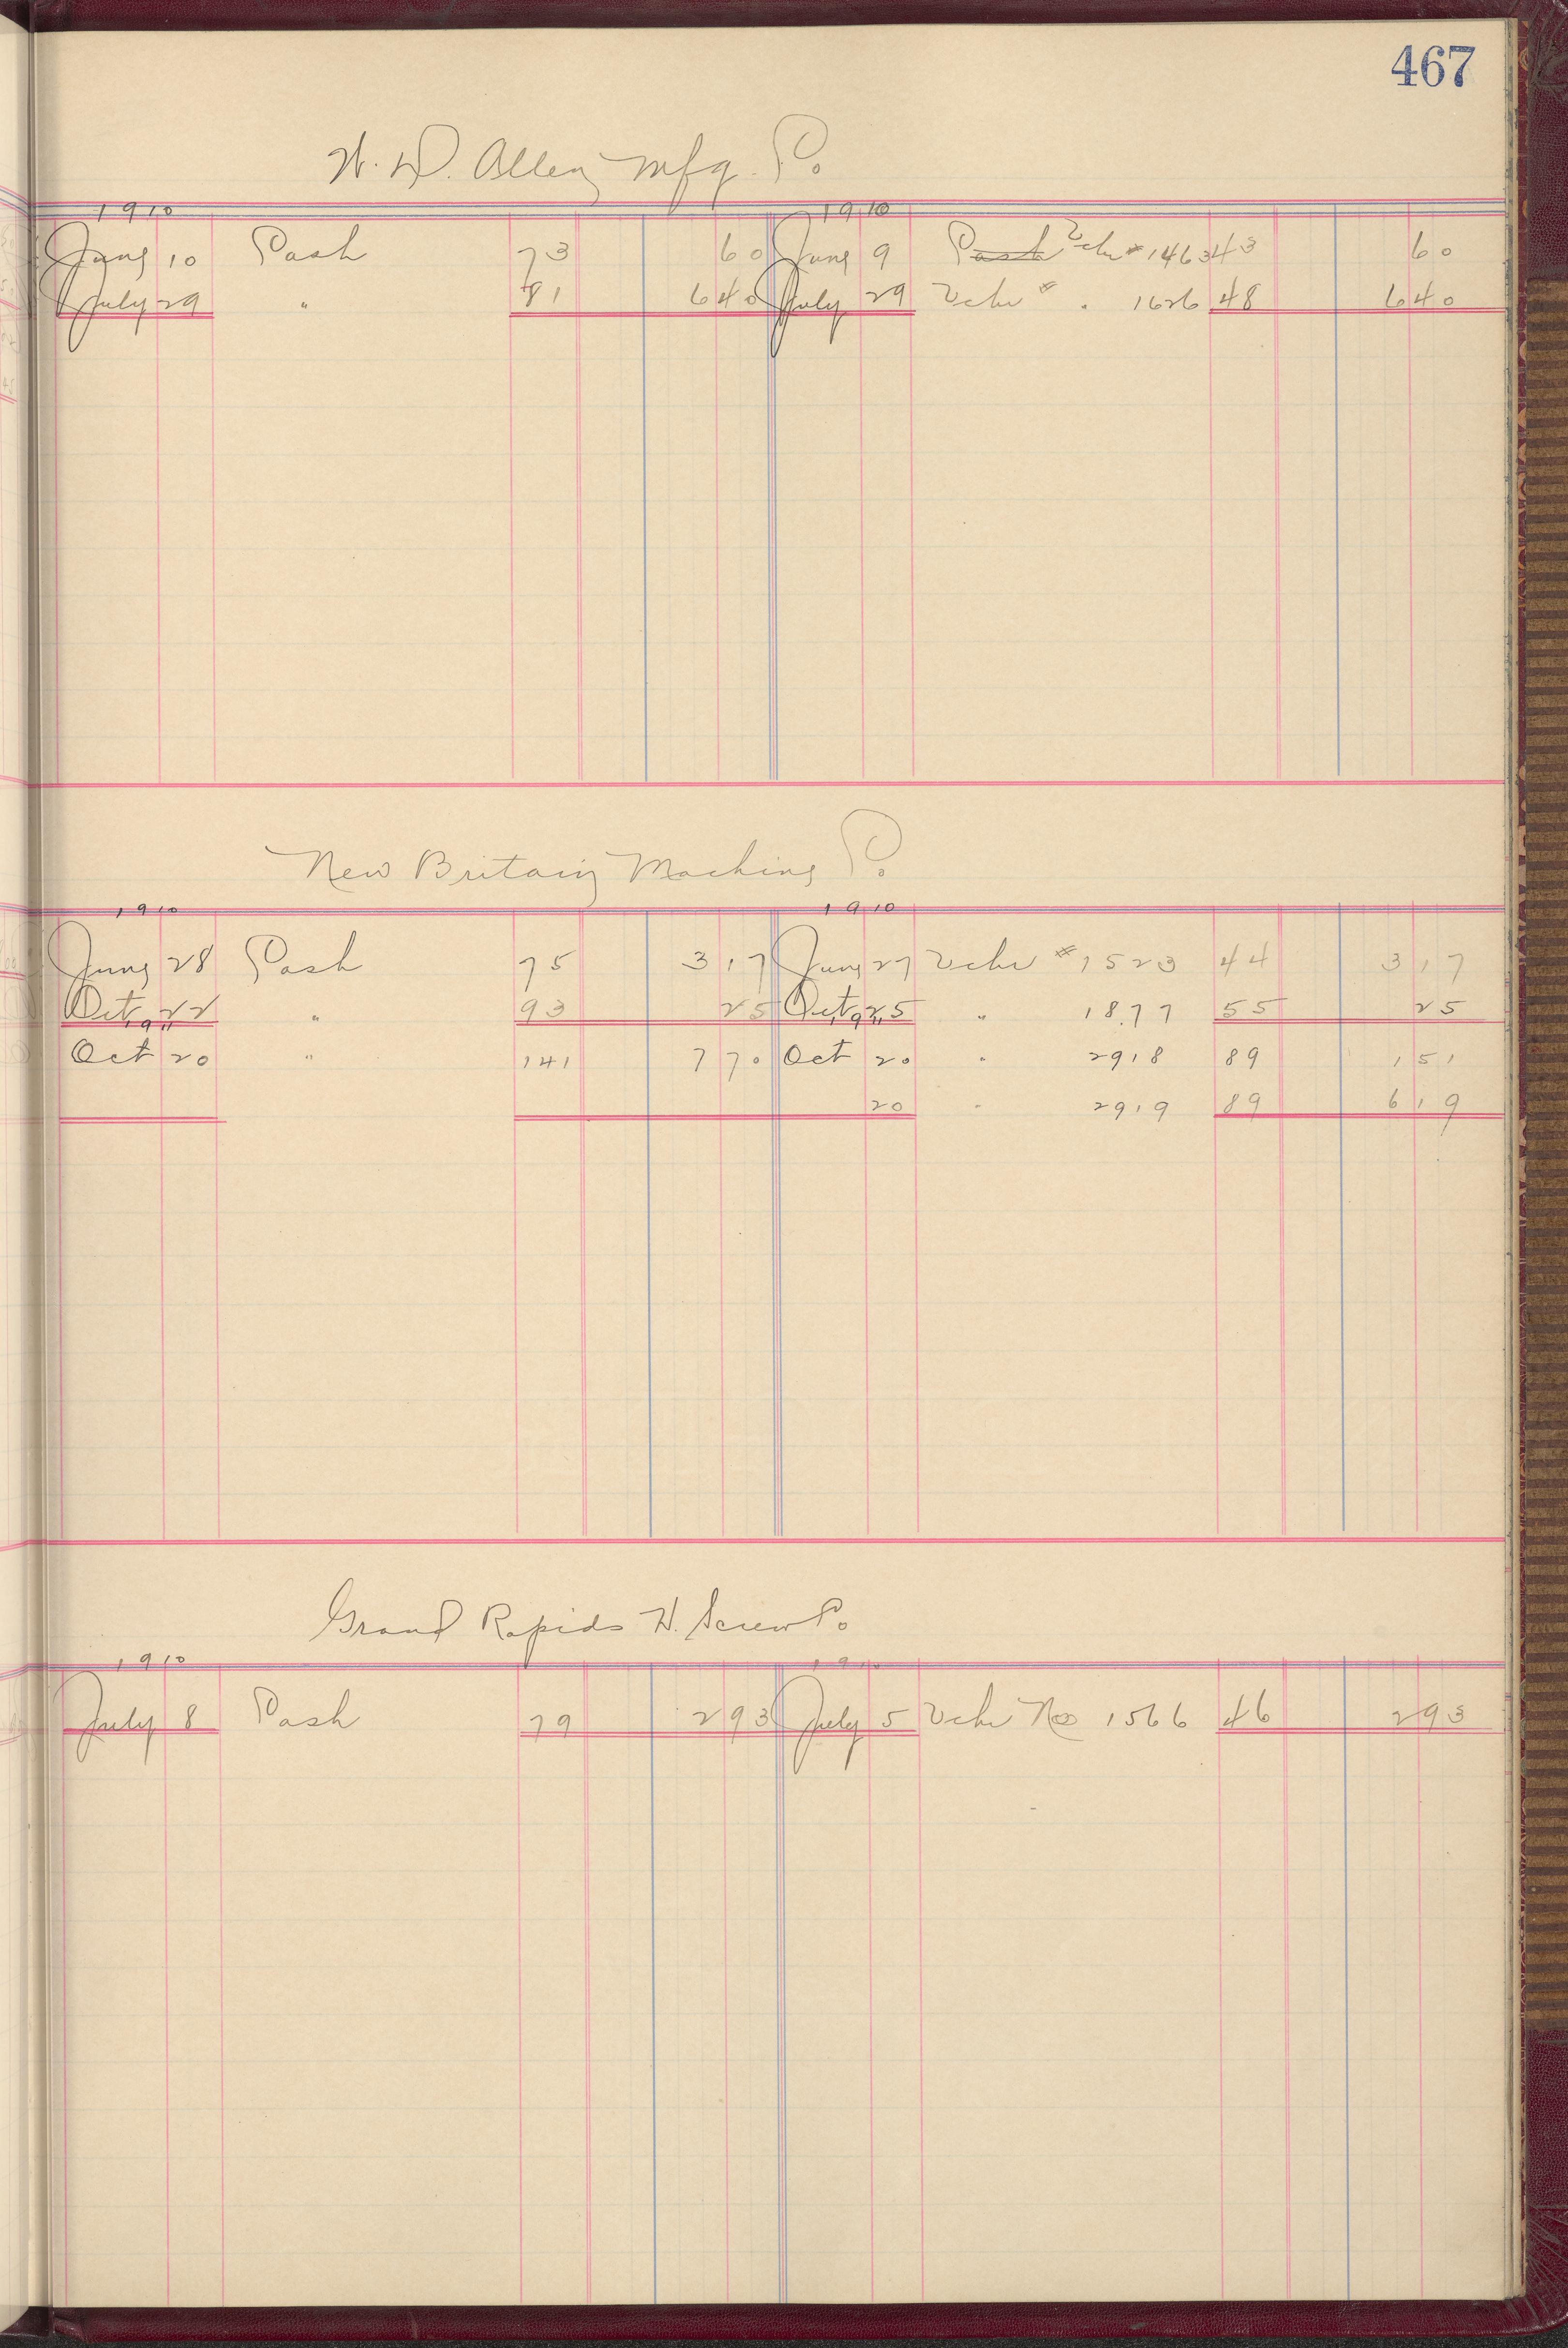 467
W. D. Allen Mfg. Co.
1910 1910
June 10 Cash 73 60 June 9 Cash Vchr # 1463 43 60
July 29 " 81 6 40 July 29 Vchr # " 1626 48 6 40
New Britain Machine Co.
1910 1910
June 28 Cash 75 3 17 June 27 Vchr # 1523 44 3 17
Oct 22 " 93 25 Oct 25 " 1877 55 25
1911 1911
Oct 20 " 141 7 70 Oct 20 " 2918 89 1 51
20 " 2919 89 6 19
Grand Rapids H. Screw Co.
1910 1910
July 8 Cash 79 2 93 July 5 Vchr No 1566 46 2 93